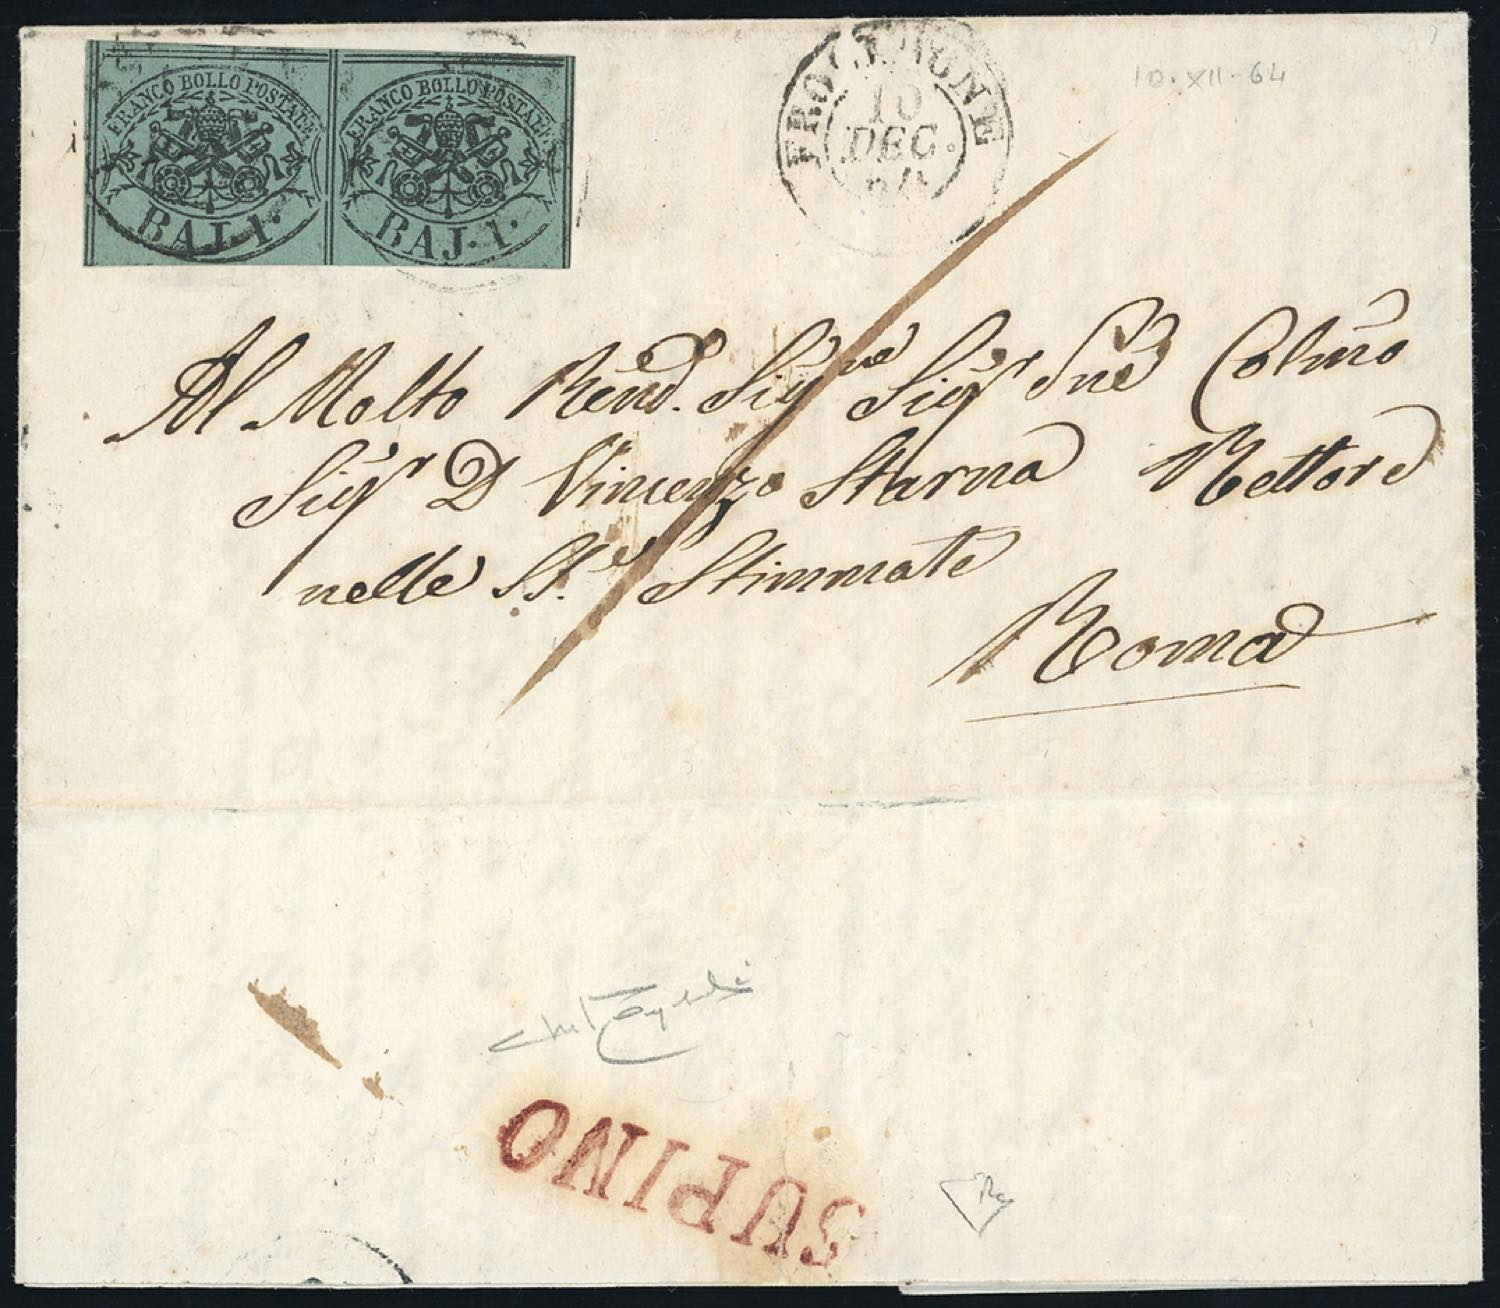 FRANCO BOLLO POSTALE
BAJ. 1.
FRANCO BOLLO POSTALE
BAJ. 1.
FROSINONE
10
DEC.
64
10.XII.64
Al Molto Rend. Sigre Sigr Sue Colmo
Sigr D Vincenzo Starna Rettore
nelle SS.e Stimmate
Roma
SUPINO